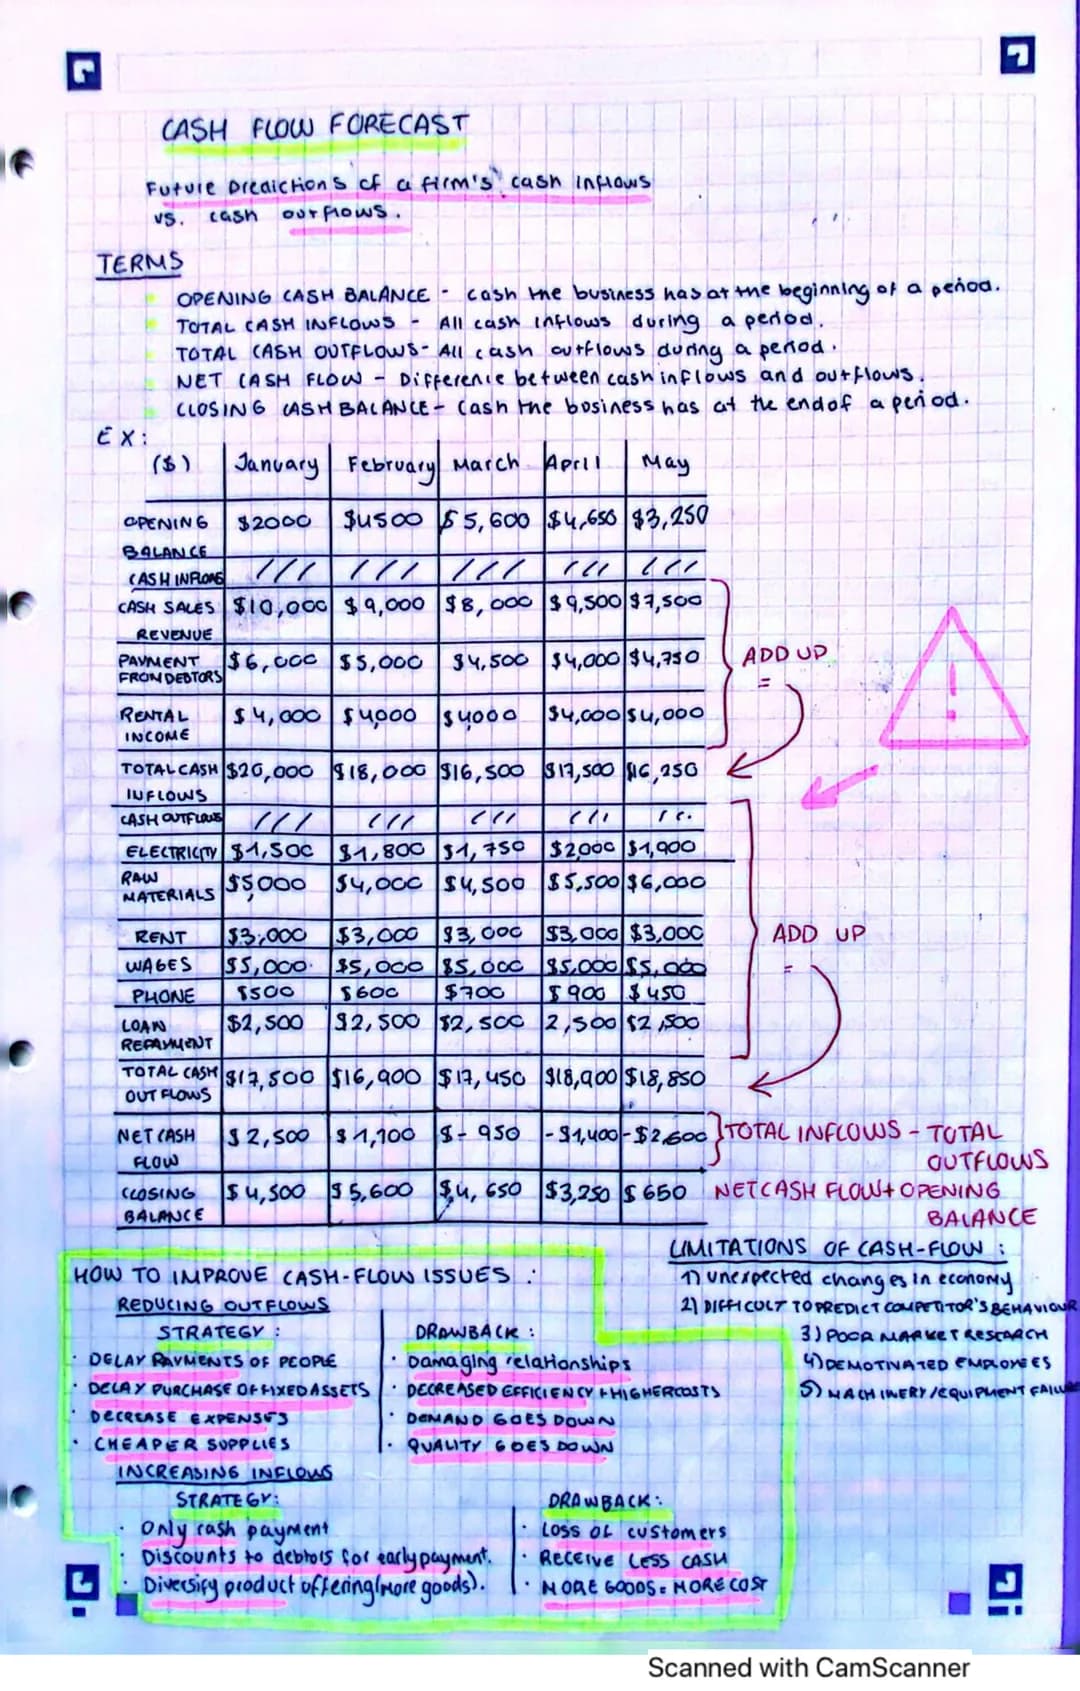 CASH FLOW FORECAST
Future predictions of a firm's cash inflows
vs. cash outflows.
TERMS
OPENING CASH BALANCE - cash the business has at the beginning of a period.
TOTAL CASH INFLOWS - All cash inflows during a period.
TOTAL CASH OUTFLOWS - All cash outflows during a period.
NET CASH FLOW - Difference between cash inflows and outflows.
CLOSING CASH BALANCE - Cash the business has at the end of a period.
EX:
($) January February March April May
OPENING BALANCE $2000 $4500 $5,600 $4,650 $3,250
CASH INFLOWS
CASH SALES REVENUE $10,000 $9,000 $8,000 $9,500 $7,500
PAYMENT FROM DEBTORS $6,000 $5,000 $4,500 $4,000 $4,750
RENTAL INCOME $4,000 $4,000 $4000 $4,000 $4,000
TOTAL CASH INFLOWS $20,000 $18,000 $16,500 $17,500 $16,250
CASH OUTFLOWS
ELECTRICITY $1,500 $1,800 $1,750 $2000 $1,900
RAW MATERIALS $5,000 $4,000 $4,500 $5,500 $6,000
RENT $3,000 $3,000 $3,000 $3,000 $3,000
WAGES $5,000 $5,000 $5,000 $5,000 $5,000
PHONE $500 $600 $700 $900 $450
LOAN REPAYMENT $2,500 $2,500 $2,500 2,500 $2,500
TOTAL CASH OUTFLOWS $17,500 $16,900 $17,450 $18,900 $18,850
NET CASH FLOW $2,500 $1,100 $-950 -$1,400 -$2,600
CLOSING BALANCE $4,500 $5,600 $4,650 $3,250 $650
ADD UP
=
!
ADD UP
=
TOTAL INFLOWS - TOTAL
OUTFLOWS
NET CASH FLOW + OPENING
BALANCE
HOW TO IMPROVE CASH-FLOW ISSUES:
REDUCING OUTFLOWS
STRATEGY:
• DELAY PAYMENTS OF PEOPLE
• DELAY PURCHASE OF FIXED ASSETS
• DECREASE EXPENSES
• CHEAPER SUPPLIES
DRAWBACK:
• Damaging relationships
• DECREASED EFFICIENCY + HIGHER COSTS
• DEMAND GOES DOWN
• QUALITY GOES DOWN
INCREASING INFLOWS
STRATEGY:
• Only cash payment
• Discounts to debtors for early payment.
• Diversify product offering (more goods).
DRAWBACK:
• LOSS OF CUSTOMERS
• RECEIVE LESS CASH
• MORE GOODS = MORE COST
LIMITATIONS OF CASH-FLOW:
1) unexpected changes in economy
2) DIFFICULT TO PREDICT COMPETITOR'S BEHAVIOUR
3) POOR MARKET RESEARCH
4) DEMOTIVATED EMPLOYEES
5) MACHINERY/EQUIPMENT FAILURE
Scanned with CamScanner